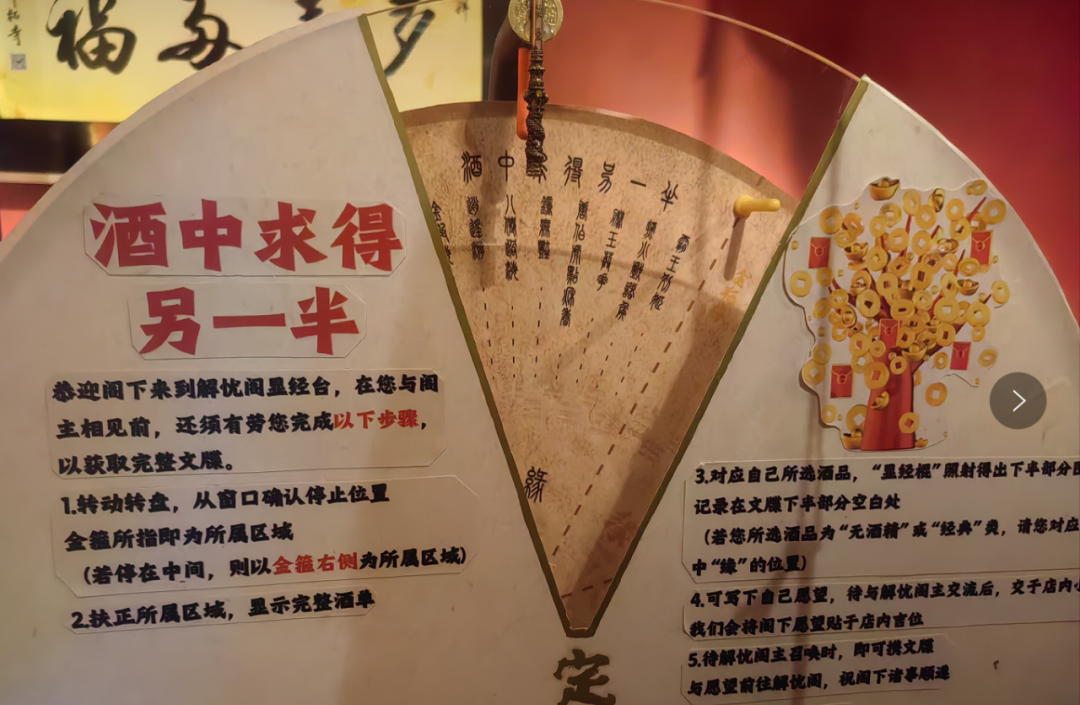 福多
酒中求得
另一半
恭迎阁下来到解忧阁显经台，在您与阁
主相见前，还须有劳您完成以下步骤，
以获取完整文牒。
1.转动转盘，从窗口确认停止位置
金箍所指即为所属区域
（若停在中间，则以金箍右侧为所属区域）
2.扶正所属区域，显示完整酒单
酒中 得另一半
霸王別姬
烽火戲諸侯
唐伯虎點秋香
緣
定
3.对应自己所选酒品，“显经棍”照射得出下半部分
记录在文牒下半部分空白处
（若您所选酒品为“无酒精”或“经典”类，请您对应
中“缘”的位置）
4.可写下自己愿望，待与解忧阁主交流后，交于店内
我们会将阁下愿望贴于店内吉位
5.待解忧阁主召唤时，即可携文牒
与愿望前往解忧阁，祝阁下诸事顺遂